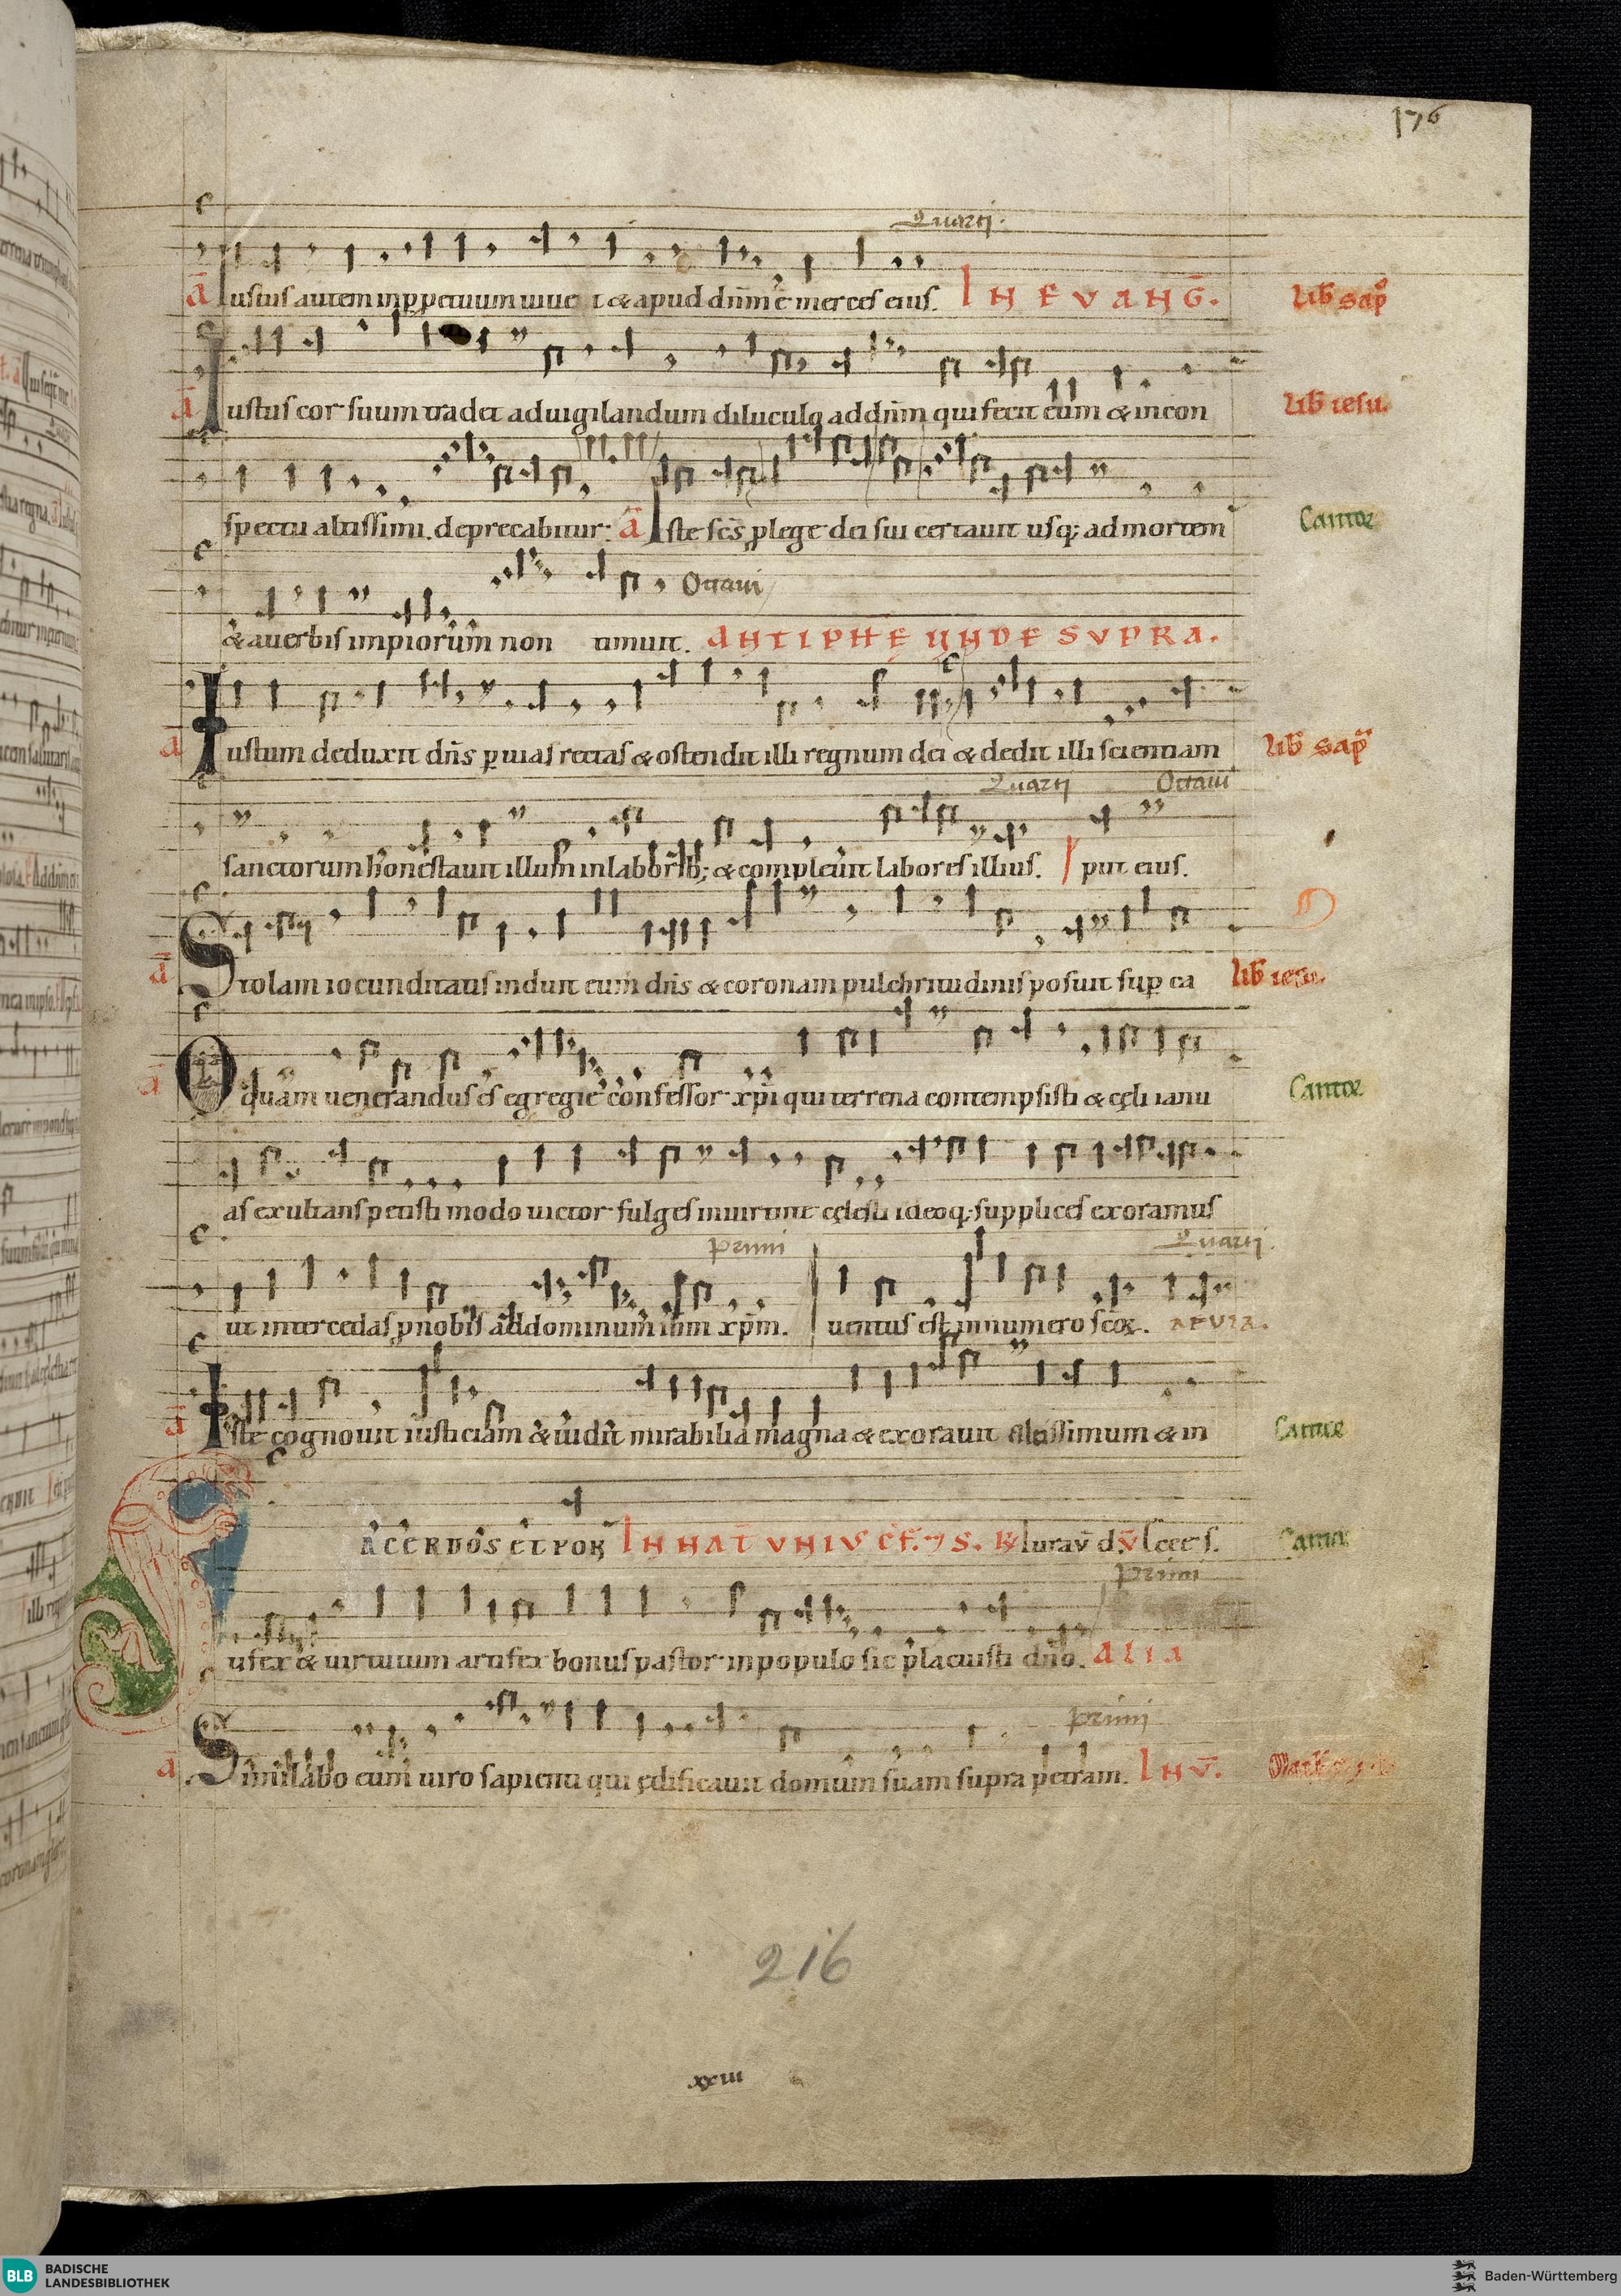 176
Quarti.
ā Iustus autem inppetuum uiue t & apud dn̄m ē merces eius. IN EVANḠ. Lib sap̄
ā Iustus cor suum tradet aduigilandum diluculo ad dn̄m qui fecit eum & incon Lib iesu.
spectu altissimi. deprecabitur: ā Iste sc̄s plege dei sui certauit usq; ad mortem Cantoꝛ
Octaui
& auerbis impiorum non timuit. ANTIPHE VNDE SVPRA.
ā Iustum deduxit dn̄s p uias rectas & ostendit illi regnum dei & dedit illi scientiam Lib sap̄
Quarti Octaui
sanctorum honestauit illum inlaborib; & compleuit labores illius. put eius.
ā Stolam iocunditatis induit eum dn̄s & coronam pulchritudinis posuit sup ca Lib iesu.
ā O quam uenerandus es egregie confessor xp̄i qui terrena contempsisti & cęli ianu Cantoꝛ
as exultans petisti modo uictor fulges inuirtute cęlesti ideoq; supplices exoramus
Primi Quarti.
ut intercedas pnobis addominum ihm xp̄m. uentus est innumero sc̄oꝝ. AEVIA.
ā Iste cognouit iusticiam & uidit mirabilia magna & exorauit altissimum & in Cantoꝛ
SACERDOS ET PON IN NAT̄ VNIVS C̄F. 7 S. ℟ Iurav̄ d. v̄ Cantoꝛ
Primi
tifex & uirtutum artifex bonus pastor inpopulo sic placuisti dn̄o. ALIA
Primi
ā Similabo eum uiro sapienti qui ędificauit domum suam supra petram. IN V̄.
216
xxiii
BLB BADISCHE
LANDESBIBLIOTHEK
Baden-Württemberg